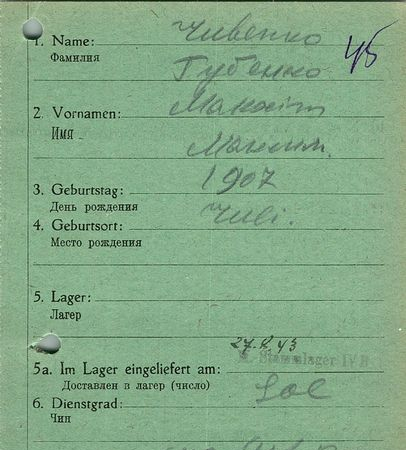 1. Name: Чивенко
Фамилия Губенко
45
2. Vornamen: Maxim
Имя Максим.
3. Geburtstag: 1907
День рождения
4. Geburtsort:
Место рождения
5. Lager:
Лагерь
27.8.43
Stammlager IV B
5a. Im Lager eingeliefert am:
Доставлен в лагерь (число)
6. Dienstgrad: Sol
Чин